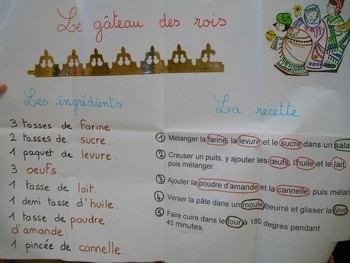 Le gâteau des rois
Les ingrédients
3 tasses de farine
2 tasses de sucre.
1 paquet de levure.
3 oeufs.
1 tasse de lait.
1 demi tasse d'huile.
1 tasse de poudre
d'amande.
1 pincée de cannelle.
La recette
1 Mélanger la farine, la levure et le sucre dans un sala
2 Creuser un puits, y ajouter les œufs, l'huile et le lait
puis mélanger.
3 Ajouter la poudre d'amande et la cannelle puis mélan
4 Verser la pâte dans un moule beurré et glisser la fève
5 Faire cuire dans le four à 180 degrés pendant
45 minutes.